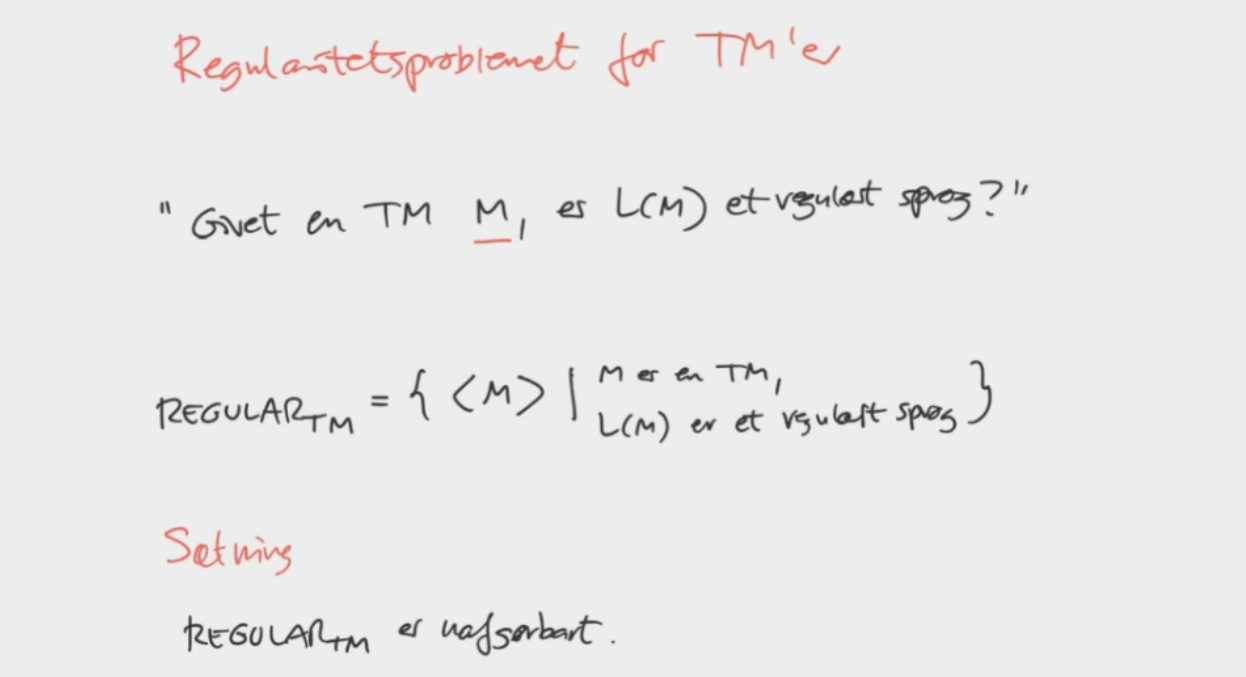 Regularitetsproblemet for TM'er
"Givet en TM M, er L(M) et regulært sprog?"
REGULAR_TM = { <M> | M er en TM,
L(M) er et regulært sprog }
Sætning
REGULAR_TM er uafgørbart.